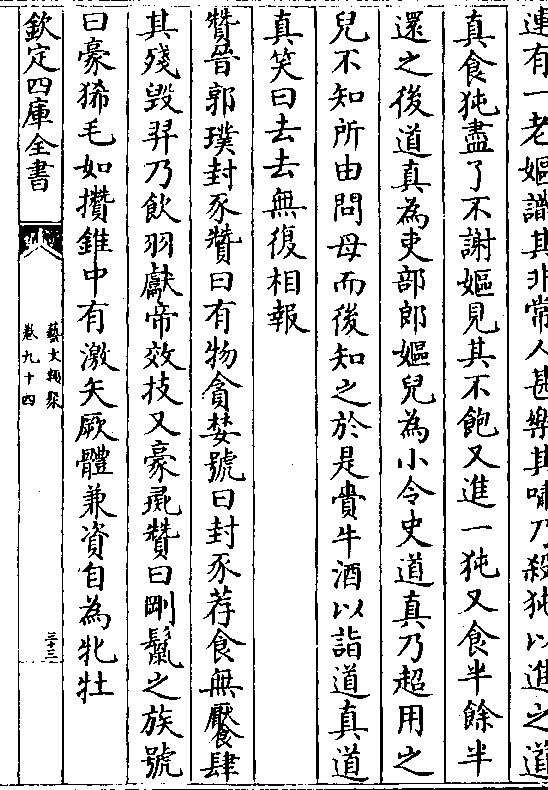 連有一老嫗識其非常人甚樂其嘯乃殺㹠以進之道
真食㹠盡了不謝嫗見其不飽又進一㹠又食半餘半
還之後道真為吏部郎嫗兒為小令史道真乃超用之
兒不知所由問母而後知之於是賫牛酒以詣道真道
真笑曰去去無復相報
贊晉郭璞封豕贊曰有物貪婪號曰封豕荐食無饜肆
其殘毁羿乃飲羽獻帝效技又豪彘贊曰剛鬛之族號
曰豪狶毛如攢錐中有激矢厥體兼資自為牝牡
欽定四庫全書
藝文類聚
卷九十四
三十三